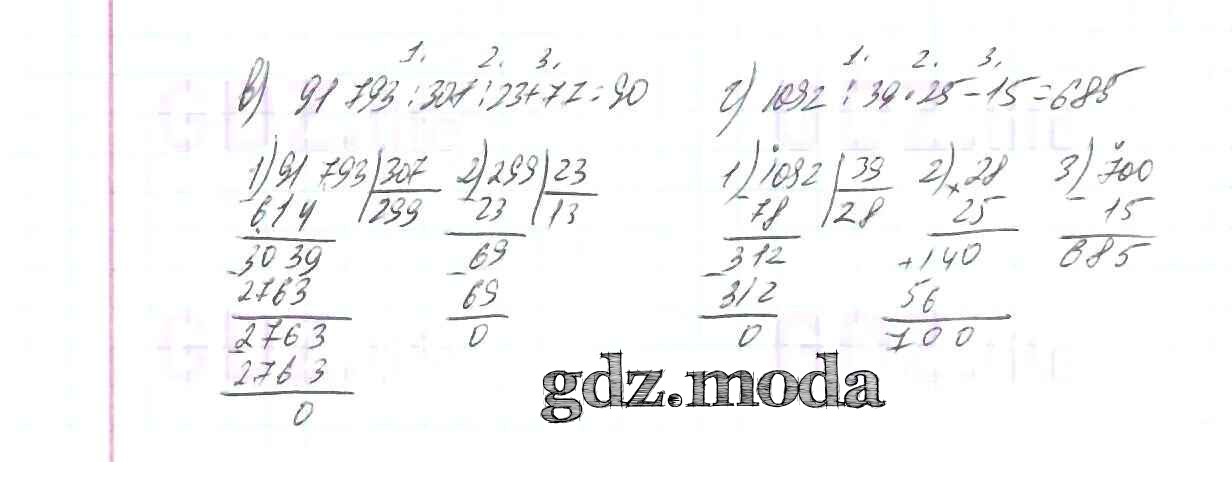 1. 2. 3.
в) 91 793 : 307 : 23 + 77 = 90
1) 91 793 | 307
- 614 299
- 3039
2763
- 2763
2763
0
2) 299 | 23
- 23 13
- 69
69
0
1. 2. 3.
г) 1092 : 39 · 25 - 15 = 685
1) 1092 | 39
- 78 28
- 312
312
0
2) × 28
25
+ 140
56
700
3) 700
- 15
685
gdz.moda